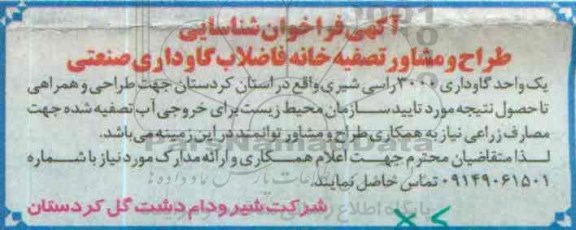 آگهی فراخوان شناسایی
طراح و مشاور تصفیه خانه فاضلاب گاوداری صنعتی
یک واحد گاوداری ۳۰۰۰ راسی شیری واقع در استان کردستان جهت طراحی و همراهی
تا حصول نتیجه مورد تایید سازمان محیط زیست برای خروجی آب تصفیه شده جهت
مصارف زراعی نیاز به همکاری طراح و مشاور توانمند در این زمینه می باشد.
لذا متقاضیان محترم جهت اعلام همکاری و ارائه مدارک مورد نیاز با شماره
۰۹۱۴۹۰۶۱۵۰۱ تماس حاصل نمایند.
شرکت شیر و دام دشت گل کردستان